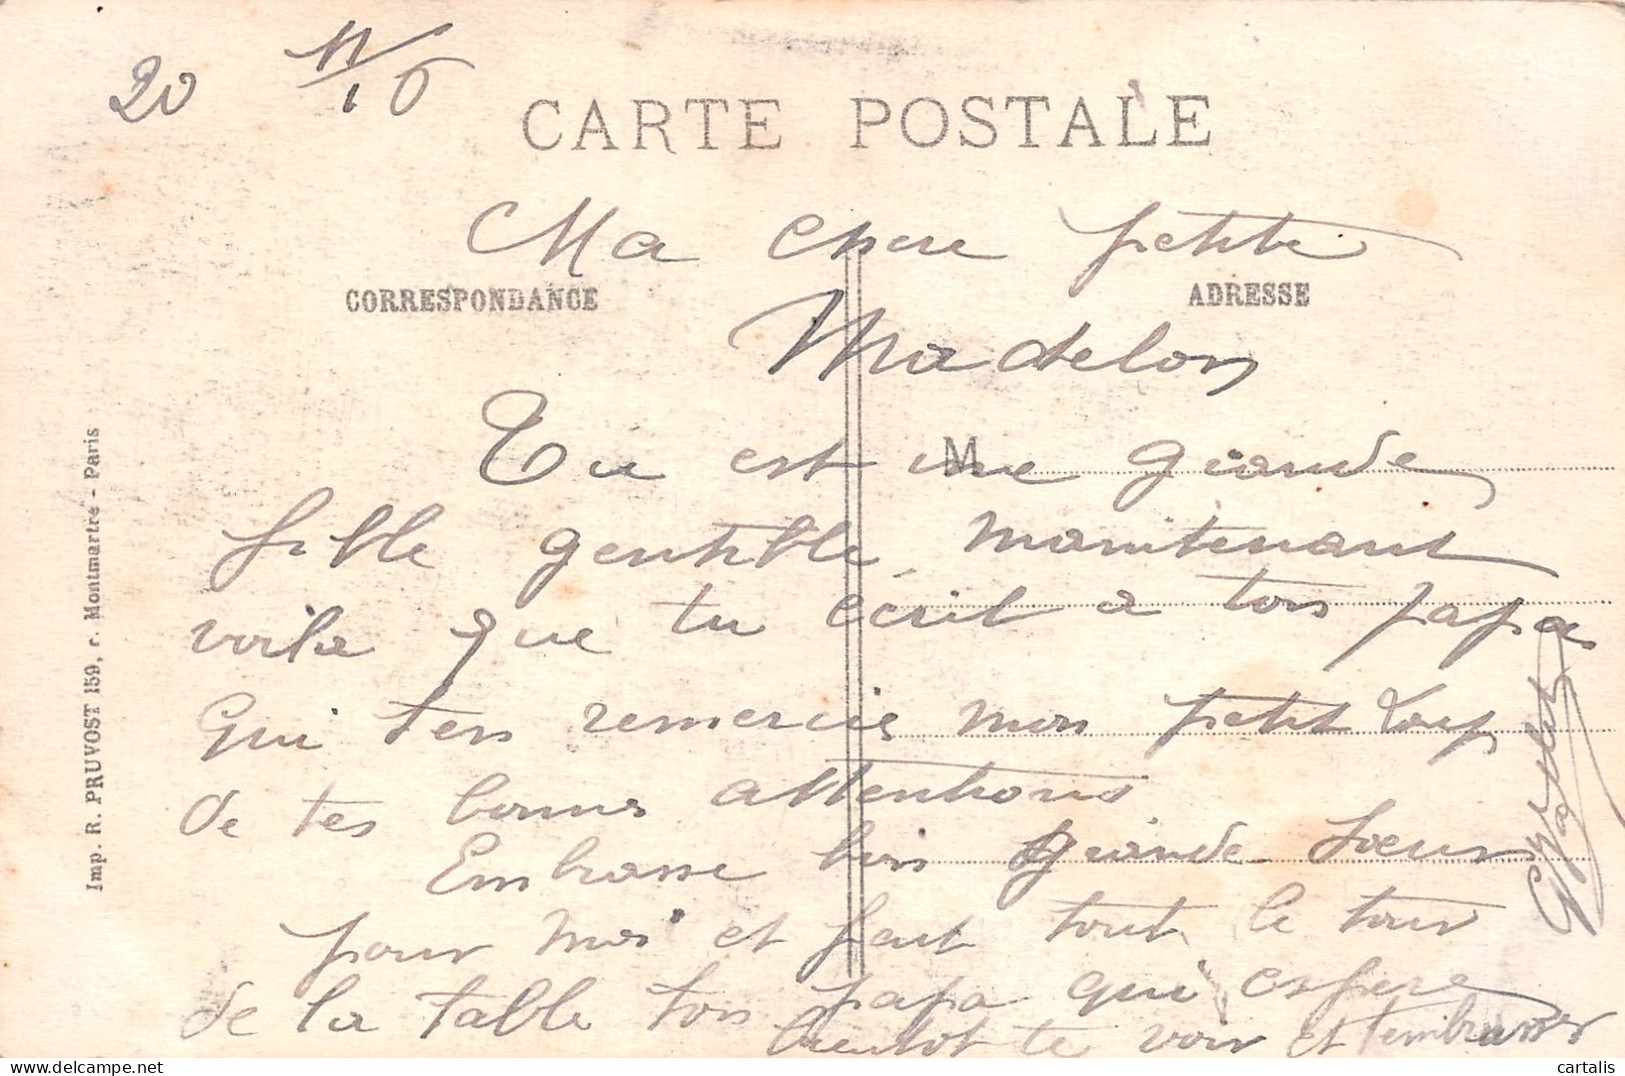 20
11/16
CARTE POSTALE
Ma chere petite
CORRESPONDANCE
ADRESSE
Madelon
M
Tu est une grande
fille gentille maintenant
voila que tu écrit a ton papa
Qui t'en remercie mon petit Loup
de tes bonnes attentions
Embrasse bien grande Soeur
pour moi et fait tout le tour
de la table ton papa qui espere
bientot te voir et t'embrasser
Imp. R. PRUVOST 159, r. Montmartre - Paris
cartalis